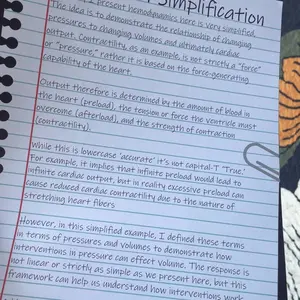 Simplification
I present hemodynamics here is very simplified.
The idea is to demonstrate the relationship of changing
pressures to changing volumes and ultimately cardiac
output. Contractility, as an example, is not strictly a "force"
or "pressure," rather it is based on the force-generating
capability of the heart.
Output therefore is determined by the amount of blood in
the heart (preload), the tension or force the ventricle must
overcome (afterload), and the strength of contraction
(contractility).
While this is lowercase 'accurate' it's not capital-T 'True.'
For example, it implies that infinite preload would lead to
infinite cardiac output, but in reality excessive preload can
cause reduced cardiac contractility due to the nature of
stretching heart fibers
However, in this simplified example, I defined these terms
in terms of pressures and volumes to demonstrate how
interventions in pressure can effect volume. The response is
not linear or strictly as simple as we present here, but this
framework can help us understand how interventions work